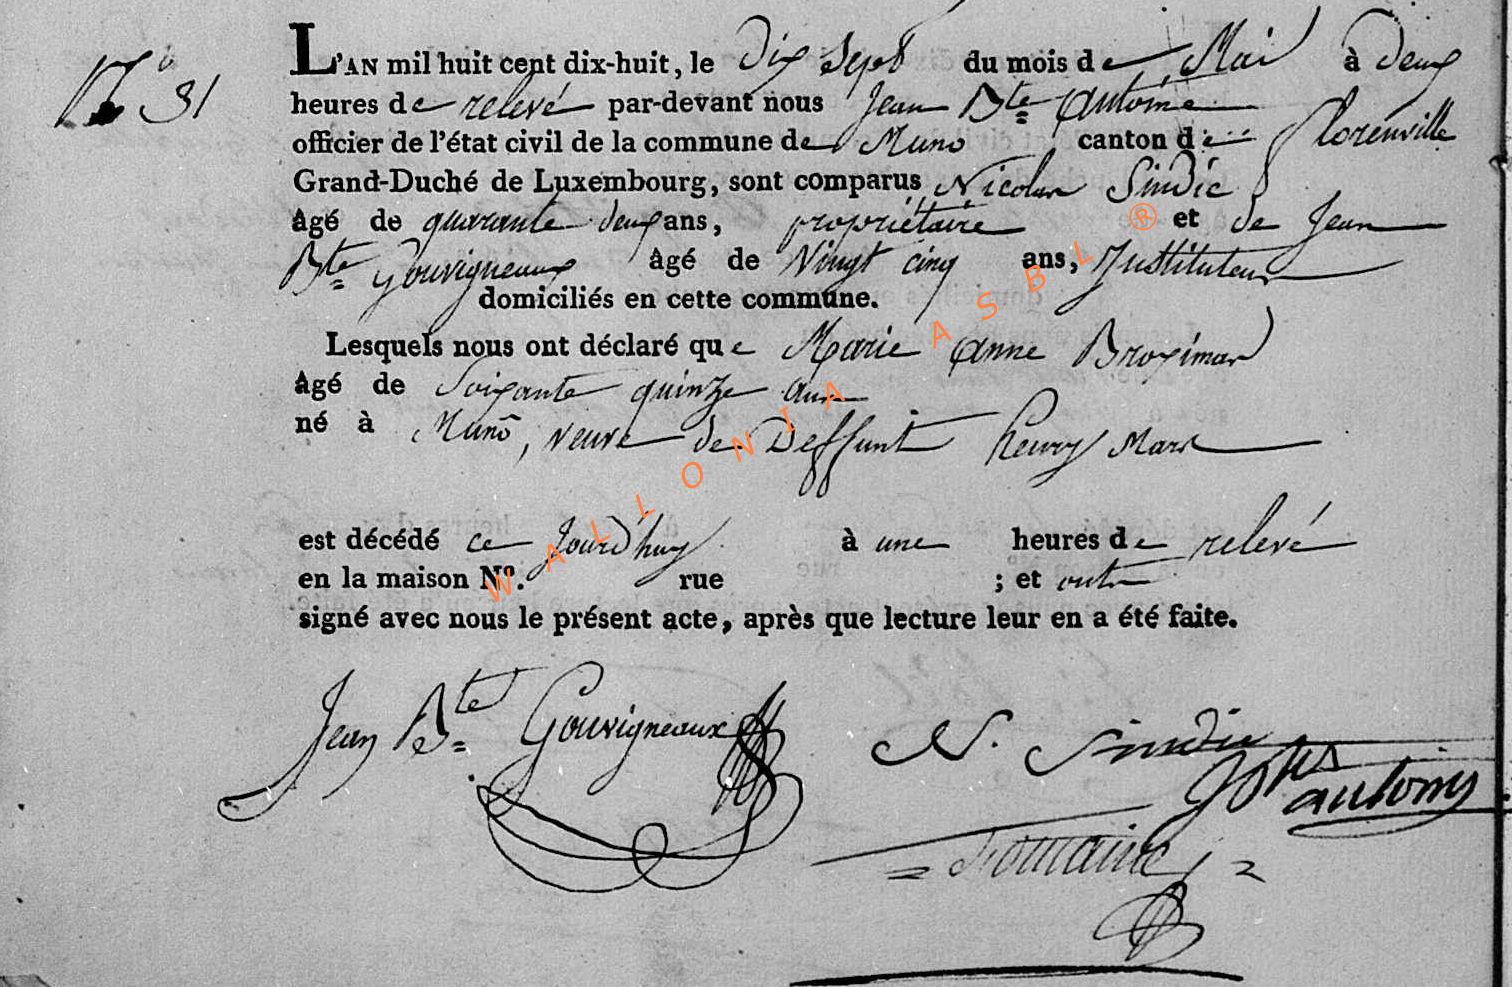 N° 31
L'AN mil huit cent dix-huit, le dix sept du mois de Mai à deux
heures de relevé par-devant nous Jean Bte Antoine
officier de l'état civil de la commune de Muno canton de Florenville
Grand-Duché de Luxembourg, sont comparus Nicolas Sindic
âgé de quarante deux ans, propriétaire et de Jean
Bte Gouvigneaux âgé de Vingt cinq ans, Instituteur
domiciliés en cette commune.
Lesquels nous ont déclaré que Marie Anne Broximar
âgé de Soixante quinze ans
né à Muno, veuve de Deffunt henry Mars
est décédé ce Jourd'huy à une heures de relevé
en la maison N°. rue ; et ont
signé avec nous le présent acte, après que lecture leur en a été faite.
Jean Bte Gouvigneaux
N. Sindic
antoine
WALLONIA ASBL ®